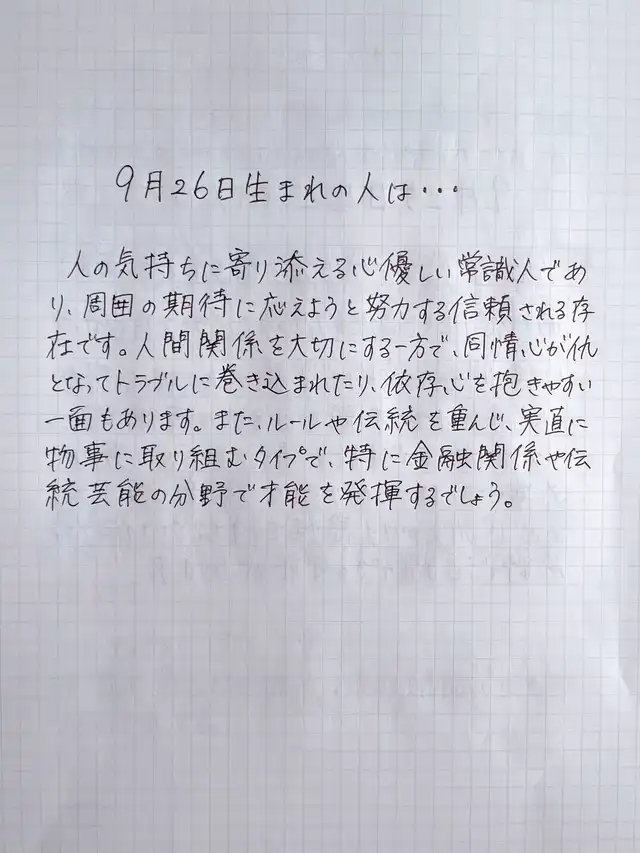 9月26日生まれの人は・・・
人の気持ちに寄り添える心優しい常識人であ
り、周囲の期待に応えようと努力する信頼される存
在です。人間関係を大切にする一方で、同情心が仇
となってトラブルに巻き込まれたり、依存心を抱きやすい
一面もあります。また、ルールや伝統を重んじ、実直に
物事に取り組むタイプで、特に金融関係や伝
統芸能の分野で才能を発揮するでしょう。